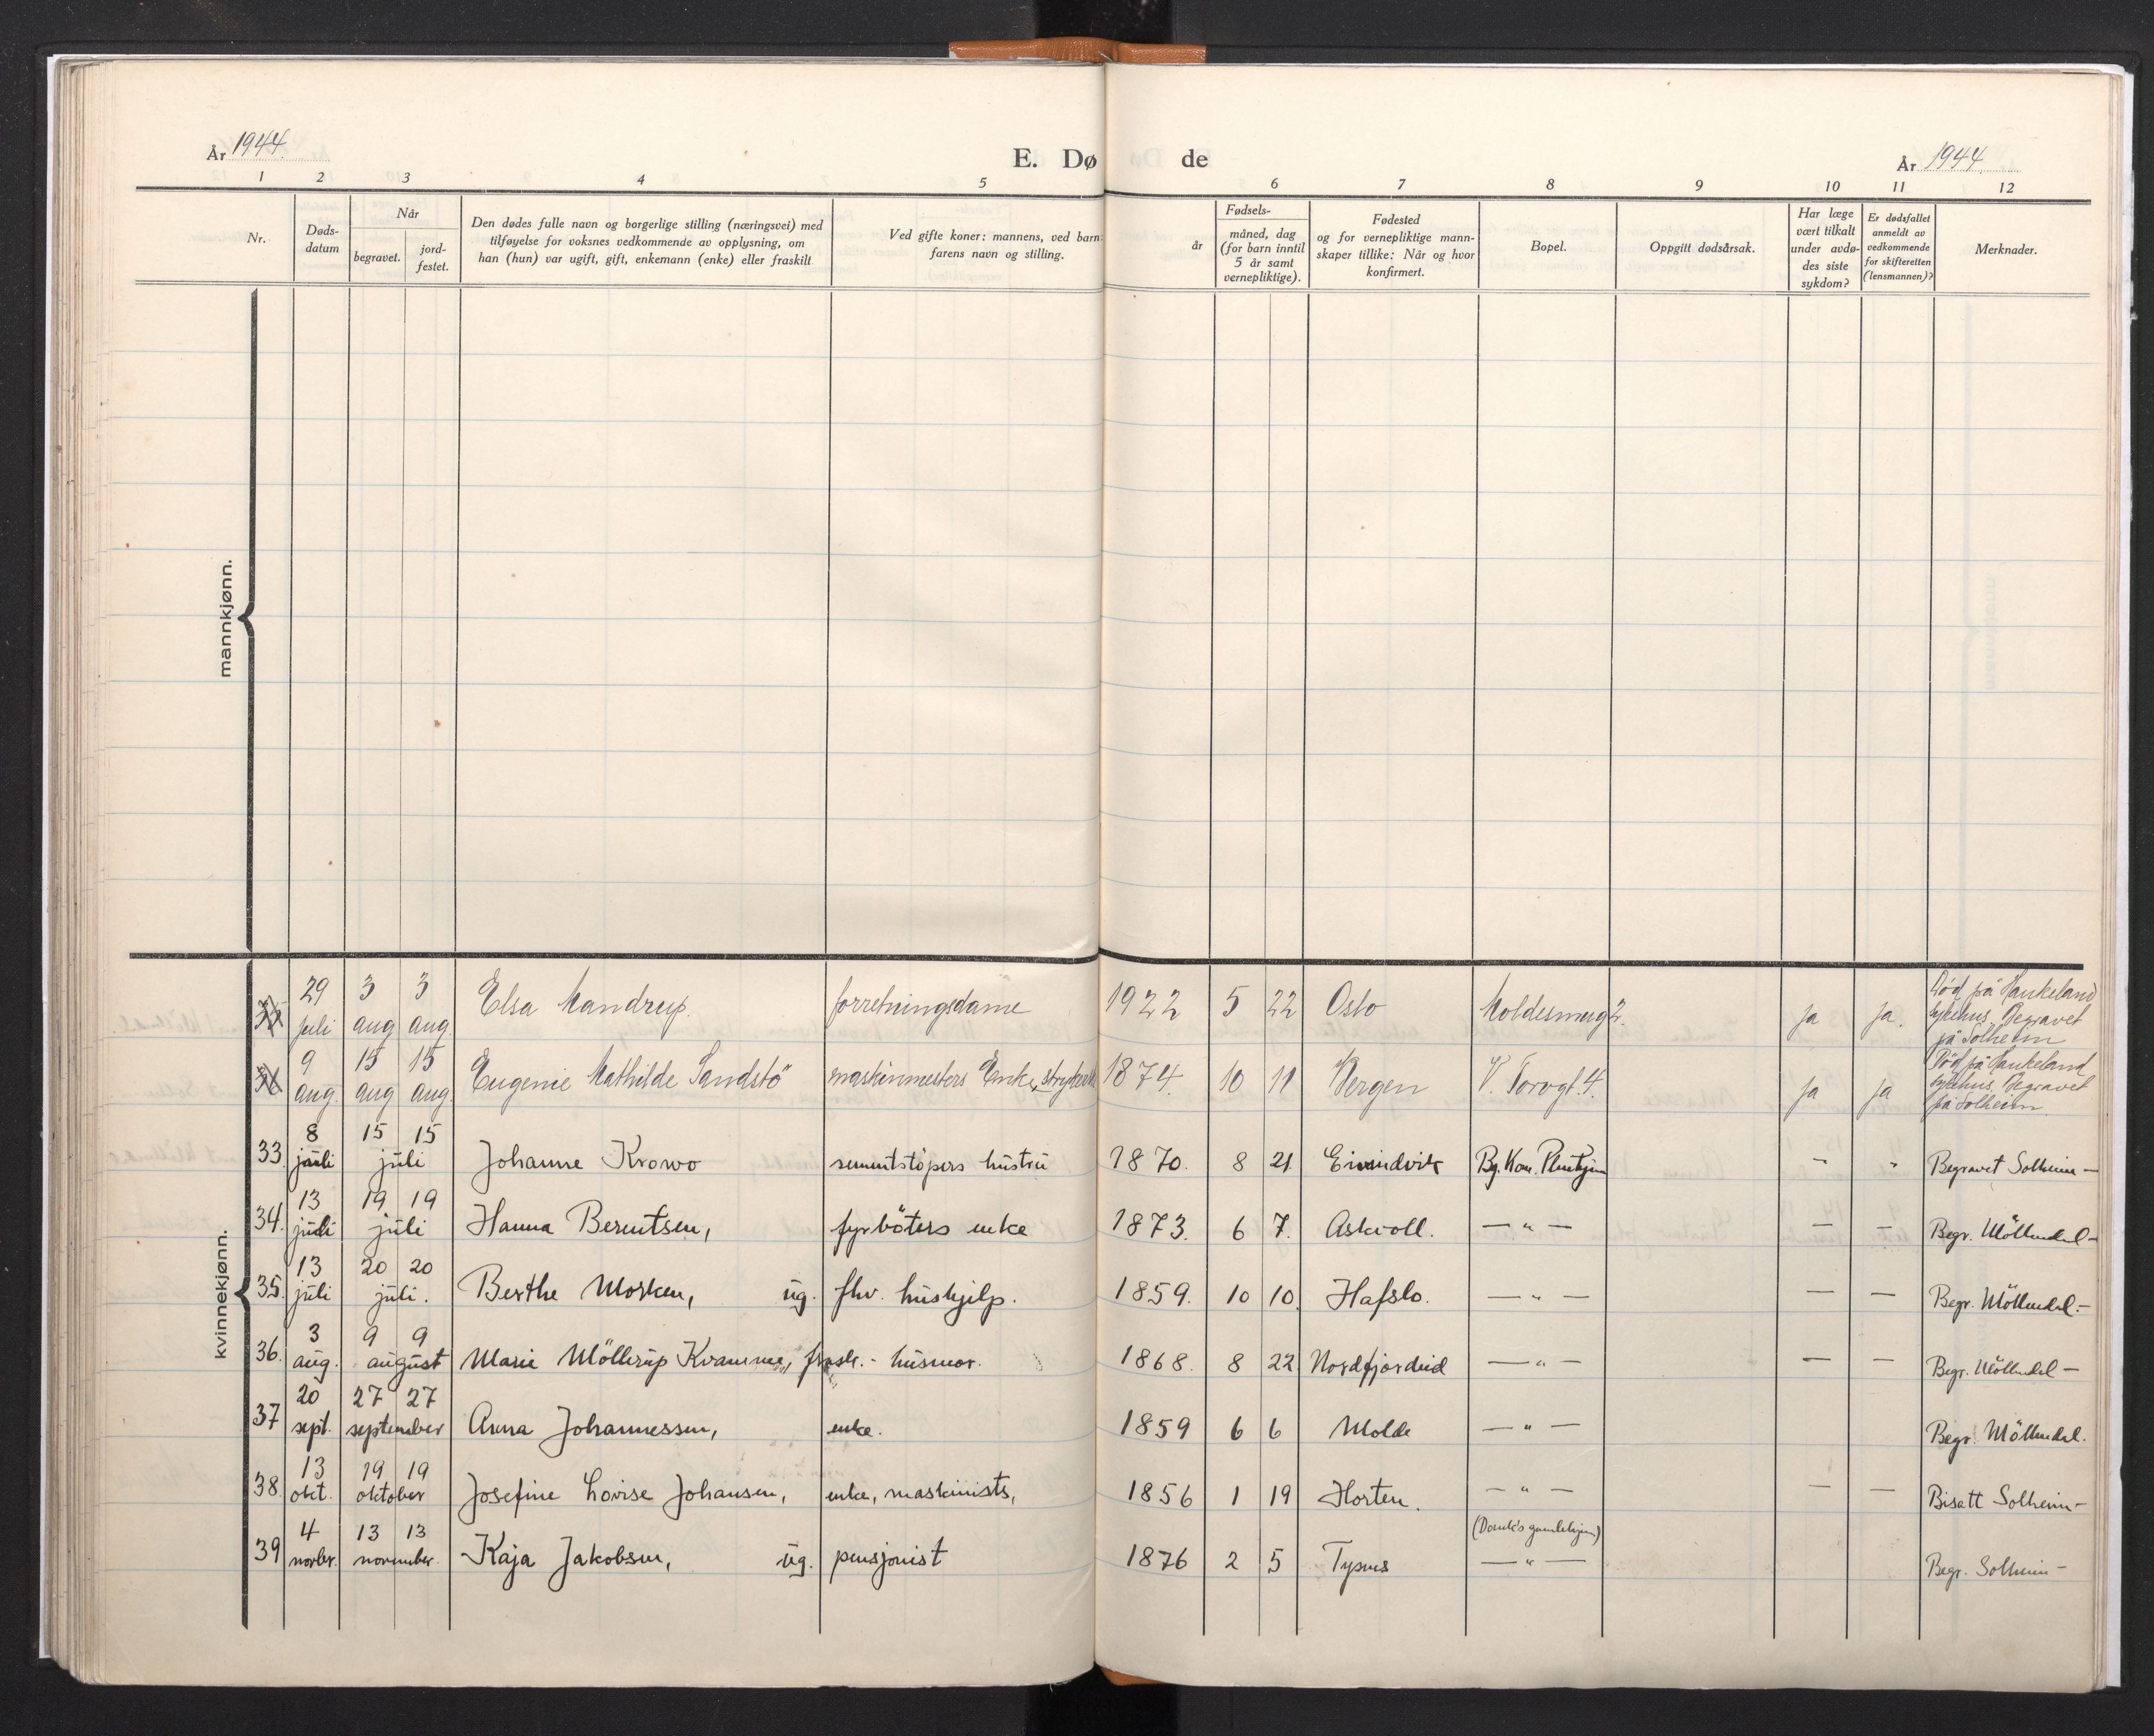 År 1944. E. Døde År 1944.
1 2 3 4 5 6 7 8 9 10 11 12
Nr.
Døds-
datum
Når
begravet.
jord-
festet.
Den dødes fulle navn og borgerlige stilling (næringsvei) med
tilføyelse for voksnes vedkommende av opplysning, om
han (hun) var ugift, gift, enkemann (enke) eller fraskilt.
Ved gifte koner: mannens, ved barn:
farens navn og stilling.
Fødsels-
år
måned, dag
(for barn inntil
5 år samt
vernepliktige).
Fødested
og for vernepliktige mann-
skaper tillike: Når og hvor
konfirmert.
Bopel.
Oppgitt dødsårsak.
Har læge
vært tilkalt
under avdø-
des siste
sykdom?
Er dødsfallet
anmeldt av
vedkommende
for skifteretten
(lensmannen)?
Merknader.
mannkjønn.
kvinnekjønn.
29 juli 3 aug 3 aug. Elsa Mandrup. forretningsdame 1922 5 22 Oslo ja ja. Död på Haukeland
sykehus. Begravet
på Solheim
9 aug. 15 aug 15 aug. Eugenie Mathilde Sandstö maskinmesters Enke, 1874. 10 11 Bergen V. Torvgt. 4. ja ja Död på Haukeland
sykehus. Begravet
på Solheim.
33. 8 juli 15 15 juli Johanne Krowo sementstöpers hustru 1870. 8 21 Eivindvik Bg. Kom. Pleiehjem - " Begravet Solheim —
34. 13 juli 19 19 juli Hanna Berntsen, fyrböters enke 1873. 6 7. Askvoll. — " — — — Begr. Möllendal —
35. 13 juli 20 20 juli. Berthe Morken, ug. fhv. hushjelp. 1859. 10 10. Hafslo. — " — — — Begr. Möllendal. —
36. 3 aug. 9 9 august Marie Möllerup Kvamme, frask. - husmor. 1868. 8 22 Nordfjordeid — " — — — Begr. Möllendal —
37 20 sept. 27 27 september Anna Johannessen, enke. 1859 6 6 Molde — " — Begr. Möllendal.
38. 13 okt. 19 19 oktober Josefine Lovise Johansen, enke, maskinists, 1856 1 19 Horten. — " — — — Bisatt Solheim —
39 4 novbr. 13 13 november. Kaja Jakobsen, ug. pensjonist 1876 2 5 Tysnes — " — Begr. Solheim —